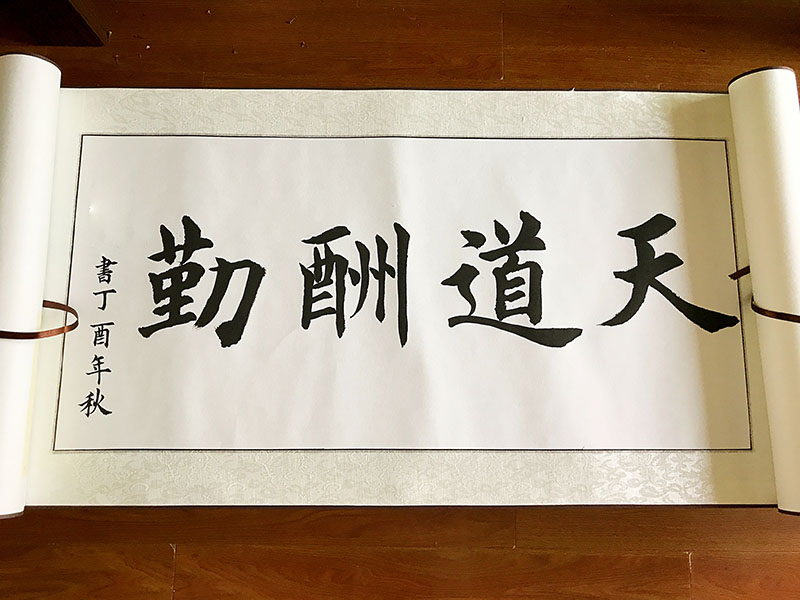 天道酬勤
書丁酉年秋